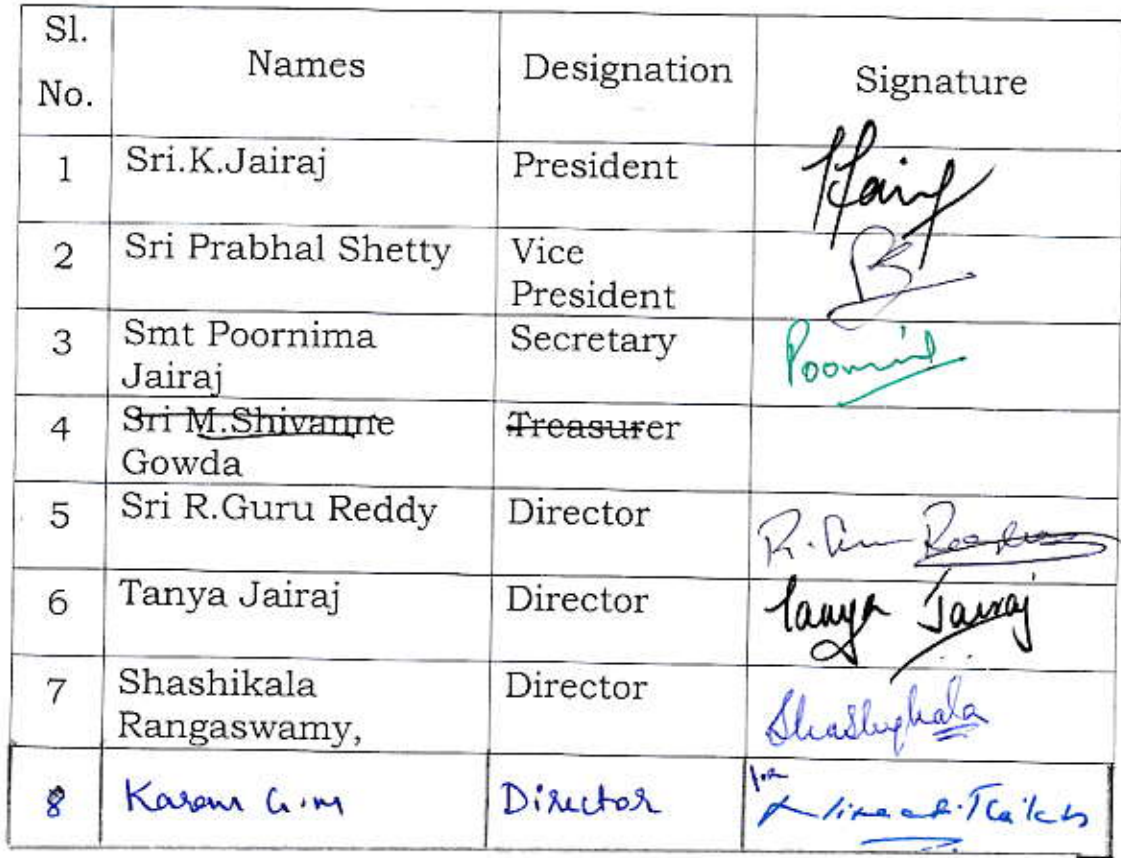 Sl.
No.
Names
Designation
Signature
1
Sri.K.Jairaj
President
2
Sri Prabhal Shetty
Vice
President
3
Smt Poornima
Jairaj
Secretary
4
Sri M.Shivanne
Gowda
Treasurer
5
Sri R.Guru Reddy
Director
6
Tanya Jairaj
Director
Tanya Jairaj
7
Shashikala
Rangaswamy,
Director
8
Karan
Director
for